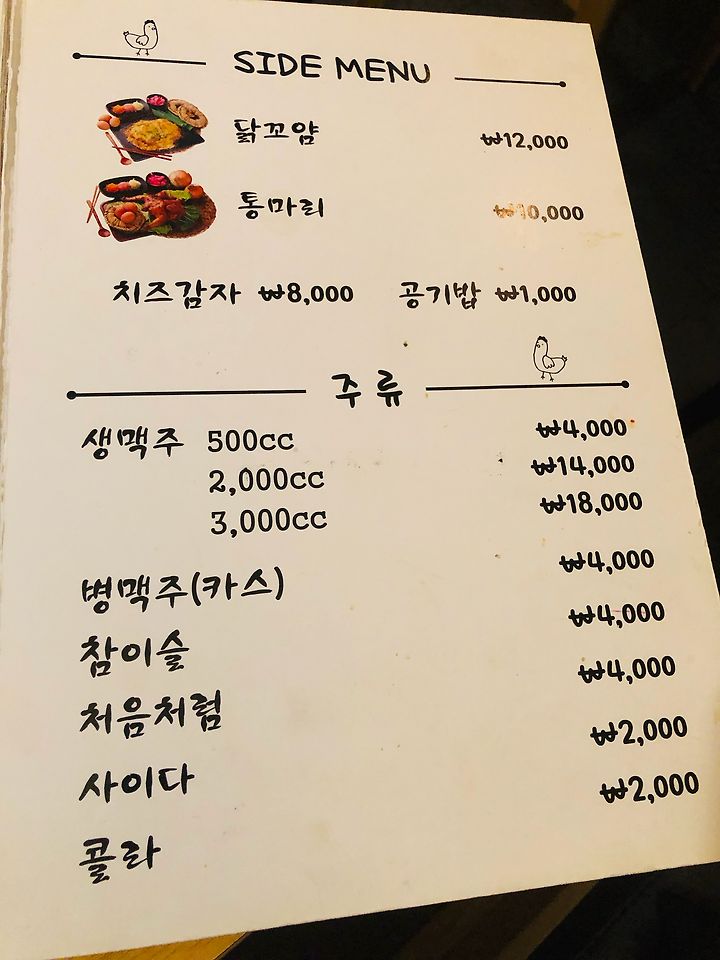 SIDE MENU
닭꼬얌 ₩12,000
통마리 ₩10,000
치즈감자 ₩8,000 공기밥 ₩1,000
주류
생맥주 500cc ₩4,000
2,000cc ₩14,000
3,000cc ₩18,000
병맥주(카스) ₩4,000
참이슬 ₩4,000
처음처럼 ₩4,000
사이다 ₩2,000
콜라 ₩2,000